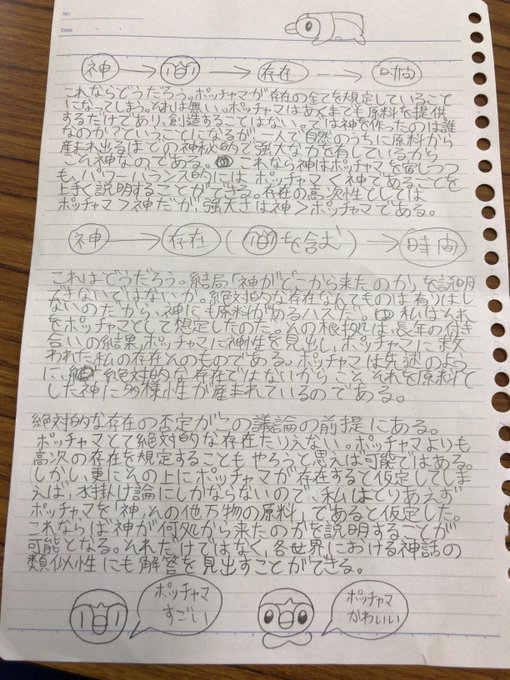 No.
Date
神 → → 存在 → 時間
これならどうだろう。ポッチャマが存在の全てを規定していること
になってしまう。それは無い。ポッチャマはあくまでも原料を提供
するだけであり、創造することはない。では神を作ったのは誰
なのか?ということになるが一人で自然のうちに原料から
産まれ出るほどの神秘的で強大な力を有しているから
こそ神なのである。これなら神はポッチャマを宿しつつ
も、パワーバランス的には ポッチャマ<神であることを
上手く説明することができる。存在の高次性としては
ポッチャマ>神だが、強大さは神>ポッチャマである。
神 → 存在 (を含む) → 時間
これはどうだろう。結局「神がどこから来たのか」を説明
できないではないか。絶対的な存在なんてものは有りはし
ないのだから、神にも原料があるハズだ。私はそれ
をポッチャマとして想定したのだ。その根拠は、長年の付き
合いの結果、ポッチャマに神性を見出し、ポッチャマに救
われた私の存在そのものである。ポッチャマは先述のよう
に、絶対的な存在ではないからこそ、それを原料と
した神に多様性が産まれているのである。
絶対的な存在の否定がこの議論の前提にある。
ポッチャマとて絶対的な存在たりえない。ポッチャマよりも
高次の存在を規定することもやろうと思えば可能ではある。
しかし、更にその上にポッチャマが存在すると仮定してしま
えば、水掛け論にしかならないので、私はとりあえず
ポッチャマを「神、その他万物の原料」であると仮定した。
これならば神が何処から来たのかを説明することが
可能となる。それだけではなく、各世界における神話の
類似性にも解答を見出すことができる。
ポッチャマ
すごい
ポッチャマ
かわいい